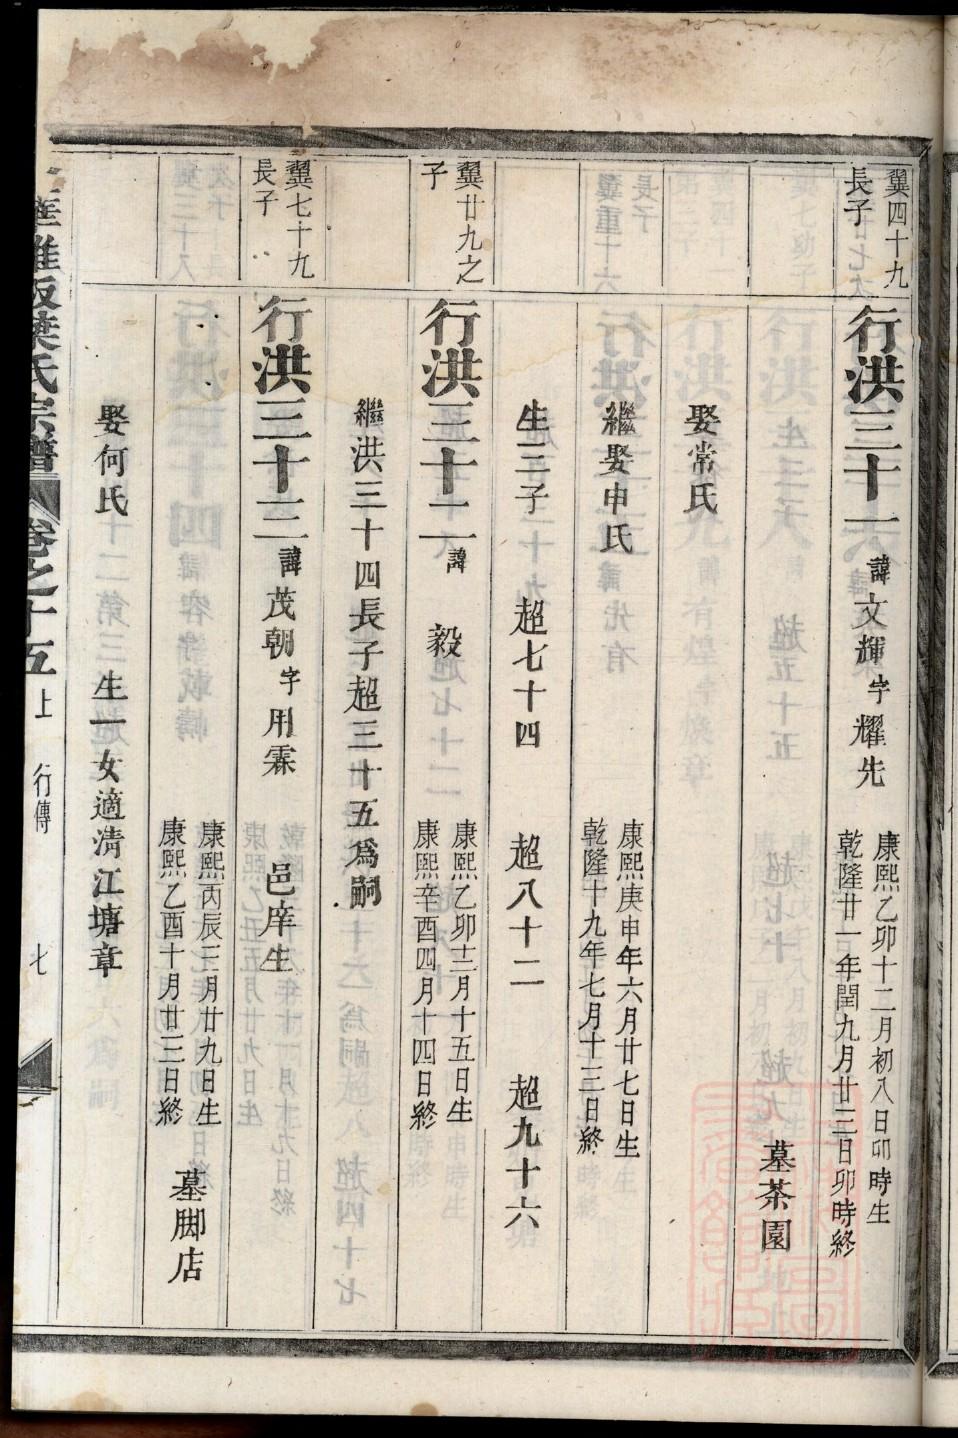 翼四十九
長子
行洪三十一諱文輝字耀先
康熙乙卯十二月初八日卯時生
乾隆廿一年閏九月廿三日卯時終
墓茶園
娶常氏
繼娶申氏
康熙庚申年六月廿七日生
乾隆十九年七月十三日終
生三子 超七十四 超八十二 超九十六
翼廿九之
子
行洪三十二諱 毅
康熙乙卯十二月十五日生
康熙辛酉四月十四日終
繼洪三十四長子超三十五爲嗣
翼七十九
長子
行洪三十三諱茂朝字用霖 邑庠生
康熙丙辰三月廿九日生
康熙乙酉十月廿三日終
墓脚店
娶何氏 生一女適清江塘章
葉氏宗譜 卷之十五上 行傳 七